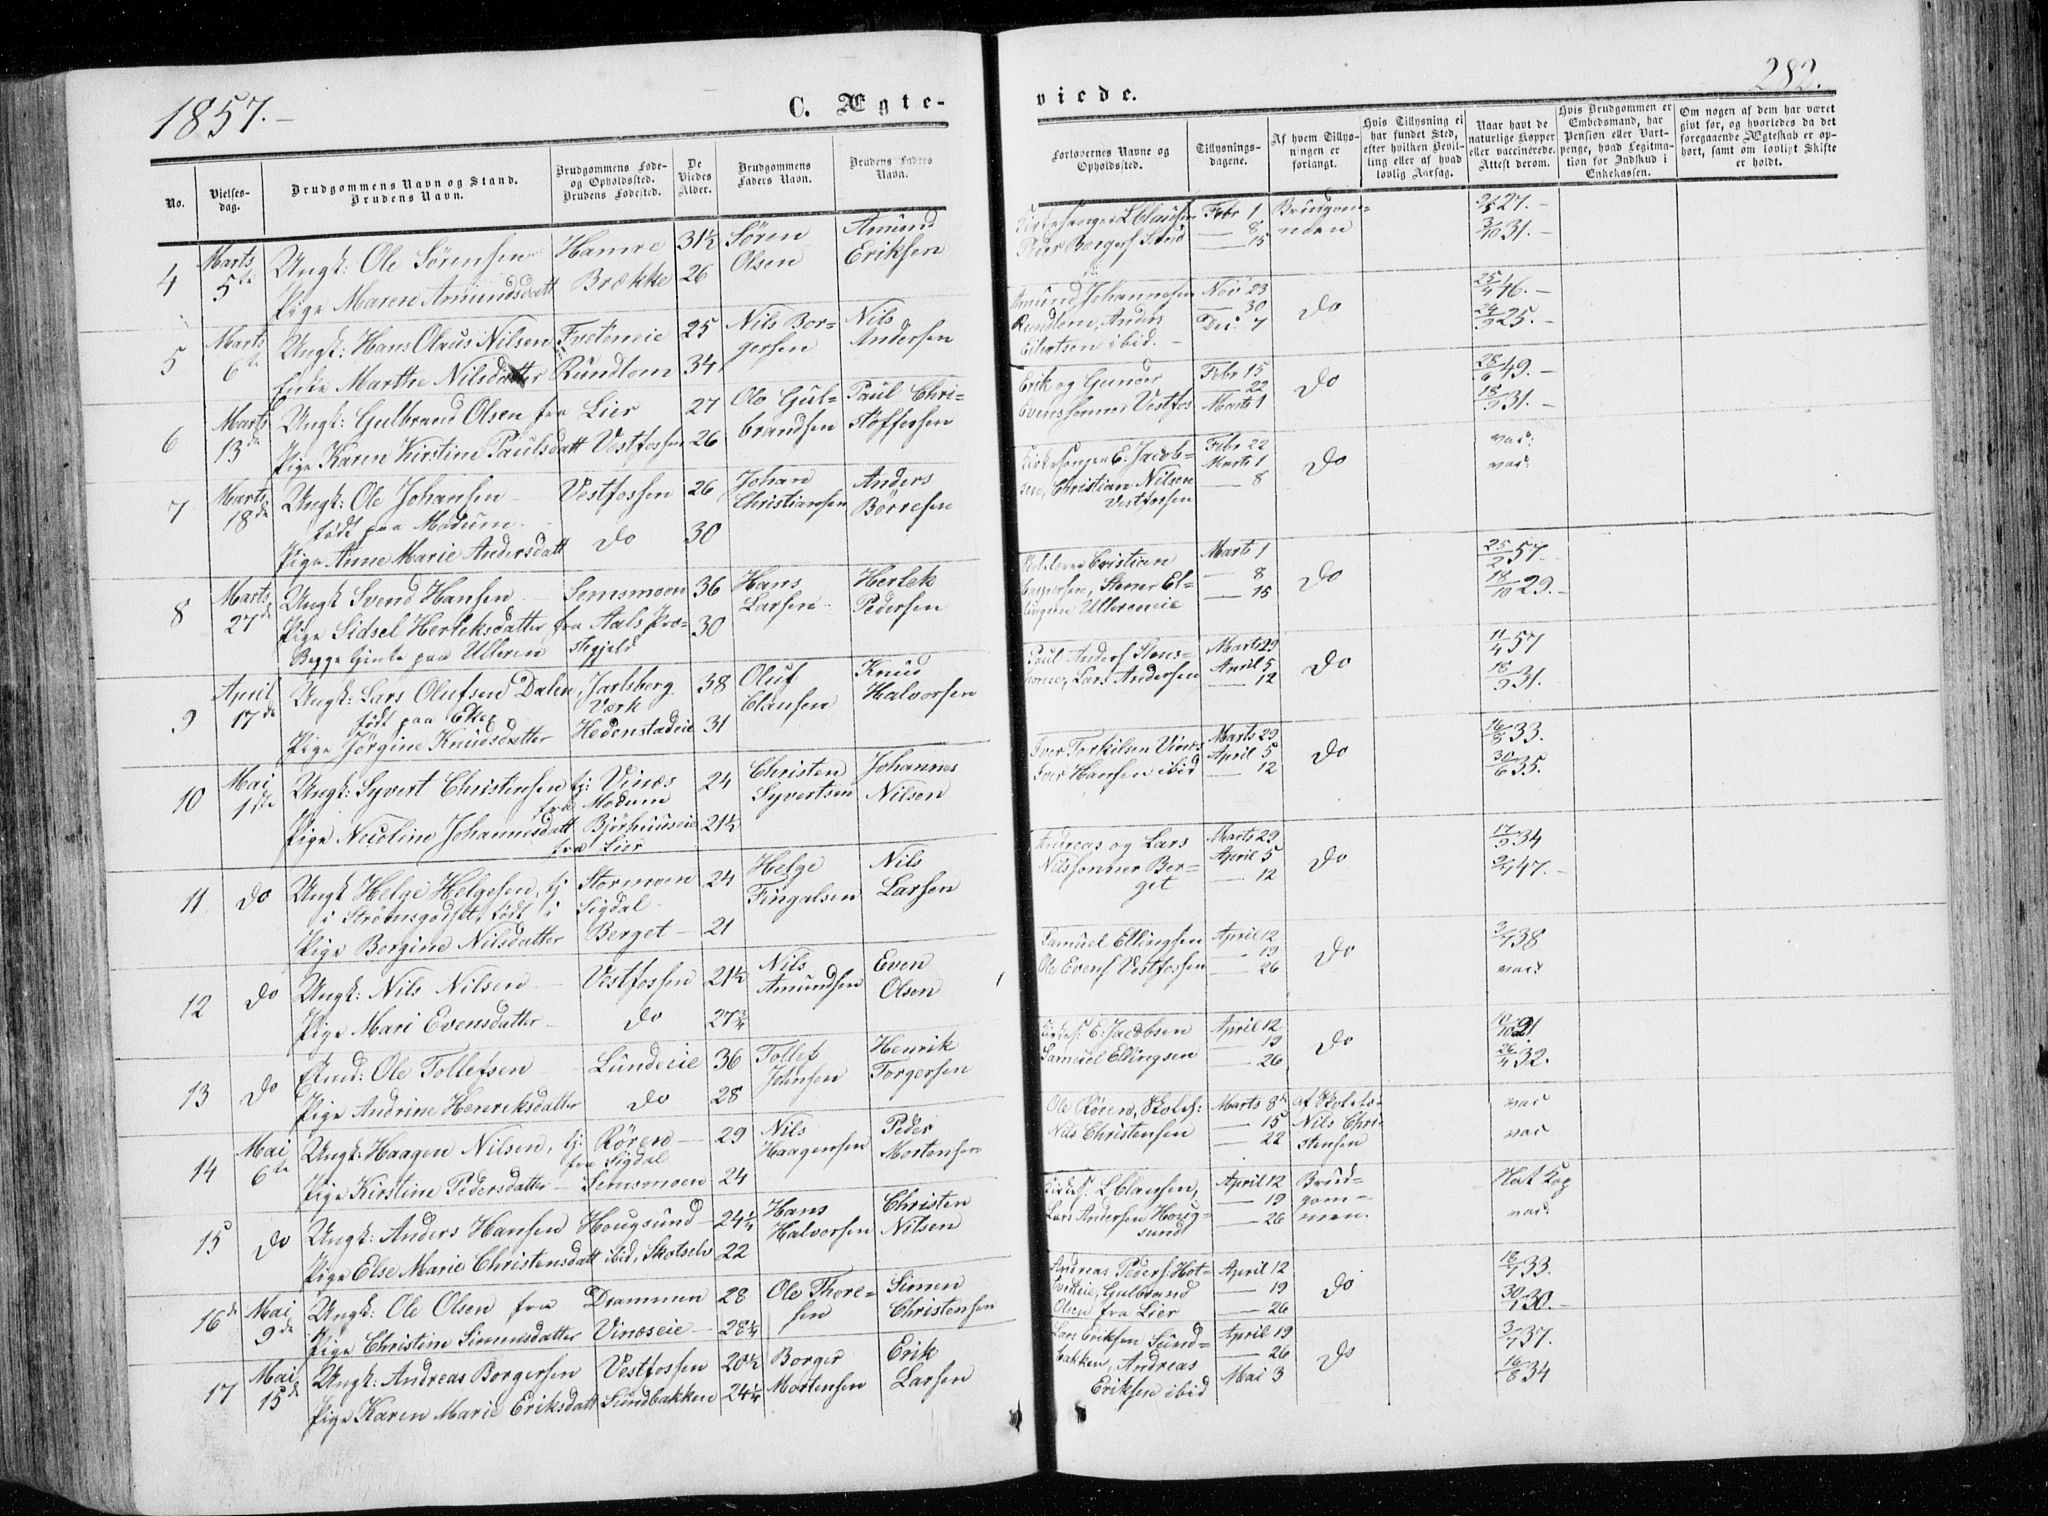 1857.-
C. Ægte-
No.
Vielses-
dag.
Brudgommens Navn og Stand.
Brudens Navn.
Brudgommens Føde-
og Opholdssted.
Brudens Fødested.
De
Viedes
Alder.
Brudgommens
Faders Navn.
Brudens Faders
Navn.
4 Marts 5te Ungk: Ole Sørensen Hamre 31½ Søren Olsen Amund Eriksen
Pige Maren Amundsdatt Brække 26
5 Marts 6te Ungk: Hans Olaus Nilsen 25 Nils Borgersen Nils Andersen
Enke Marthe Nilsdatter Rundtom 34
6 Marts 13de Ungk: Gulbrand Olsen fra Lier 27 Ole Gulbrandsen Paul Christoffersen
Pige Karen Kirstine Paulsdatt Vestfossen 26
7 Marts 18de Ungk: Ole Johansen Vestfossen 26 Johan Christiansen Anders Børresen
født paa Modum
Pige Anne Marie Andersdatt Do 30
8 Marts 27de Ungk Svend Hansen Semsmoen 36 Hans Larsen Herlek Pedersen
Pige Sidsel Herleksdatter fra Aals Præ- 30
Begge tjente paa Ulleren stgjeld
9 April 17de Ungk: Lars Olufsen Dalen, Jarlsberg 38 Oluf Clausen Knud Halvorsen
født paa Eker Værk
Pige Jørgine Knudsdatter Hedenstadeie 31
10 Mai 1ste Ungk: Syvert Christensen tj: Vinæs 24 Christen Syvertsen Johannes Nilsen
fra Modum
Pige Nicoline Johannesdatt Bjørhuuseie 21½
fra Lier
11 Do Ungk Helge Helgesen, tj Stormoen 24 Helge Fingalsen Nils Larsen
i Strømsgodset, født i Sigdal
Pige Borgine Nilsdatter Berget 21
12 Do Ungk: Nils Nilsen Vestfossen 21½ Nils Amundsen Even Olsen
Pige Mari Evensdatter Do 27¾
13 Do Ole Tollefsen Lundeeie 36 Tollef Johnsen Henrik Torgersen
Pige Andrine Henriksdatter Do 28
14 Mai 6te Ungk: Haagen Nilsen, tj: Røren 29 Nils Haagensen Peder Mortensen
fra Sigdal
Pige Kirstine Pedersdatter Semsmoen 24
15 Do Ungk: Anders Hansen Hougsund 24¼ Hans Halvorsen Christen Nilsen
Pige Else Marie Christensdatt ibid, Skotselv 22
16de Mai 9de Ungk: Ole Olsen fra Drammen 28 Ole Thoresen Simen Christensen
Pige Christine Simensdatter Vinæseie 28¼
17 Mai 15de Ungk: Andreas Borgersen Vestfossen 20½ Borger Mortensen Erik Larsen
Pige Karen Marie Eriksdatt Sundbakken 24¼
282.
viede.
Forlovernes Navne og
Opholdssted.
Tillysnings-
dagene.
Af hvem Tillys-
ningen er
forlangt.
Hvis Tillysning ei
har fundet Sted,
efter hvilken Bevil-
ling eller af hvad
lovlig Aarsag.
Naar havt de
naturlige Kopper
eller vaccinerede.
Attest derom.
Hvis Brudgommen er
Embedsmand, har
Pension eller Vart-
penge, hvad Legitma-
tion for Indskud i
Enkekassen.
Om nogen af dem har været
givt før, og hvorledes da det
foregaaende Ægteskab er op-
hørt, samt om lovligt Skifte
er holdt.
Kirkesanger L Clausen Febr 1 Brudgom-
Peder Borgers Sund — 8 men 3/10 31.-
— 15
Amund Johannesen Nov 23 Do
Rundtom, Anders — 30
Eilertsen ibid. Dec. 7
Erik og Gunder Febr 15 Do 28/6 49.-
Evenssønner Vestfos — 22 18/9 31.-
Marts 1
Kirkesanger E. Jacob- Febr 22 Do vac:
sen, Christian Nilsen Marts 1 vac:
Vestfossen — 8
Cristian Marts 1 Do 25/2 57.-
Caspersen, — 8 18/10 29.-
— 15
Paul Anders Marts 29 Do 11/4 57
Lars Andersen April 5 18/9 31.
— 12
Iver Torkilsen Vinæs Marts 29 Do 16/8 33.
Iver Hansen ibid April 5 30/6 35.
— 12
Andreas og Lars Marts 29 Do 17/9 34
Nilssønner Ber- April 5 47.-
get — 12
Samuel Ellingsen April 12 Do 3/7 38
Ole Evens Vestfossen — 19 vac:
— 26
Kirkes: E: Jacobsen April 12 Do
Samuel Ellingsen — 19 26/4 32.
— 26
Ole Røren, Skoles: Marts 8de af Skolelæ- vac
Nils Christensen — 15 Nils Chri- vac
— 22 stensen
Kirkes. L Clausen, April 12 Brud- Hat Kop
Lars Andersen Houg- — 19 gom- vac:
sund — 26 men.
Andreas Peders: Hot- April 12 Do 18/7 33.
Gulbrand — 19 30.-
Olsen fra Lier — 26
Lars Eriksen Sund- April 19 Do 3/7 37.
bakken, Andreas — 26 16/8 34
Eriksen ibid Mai 3